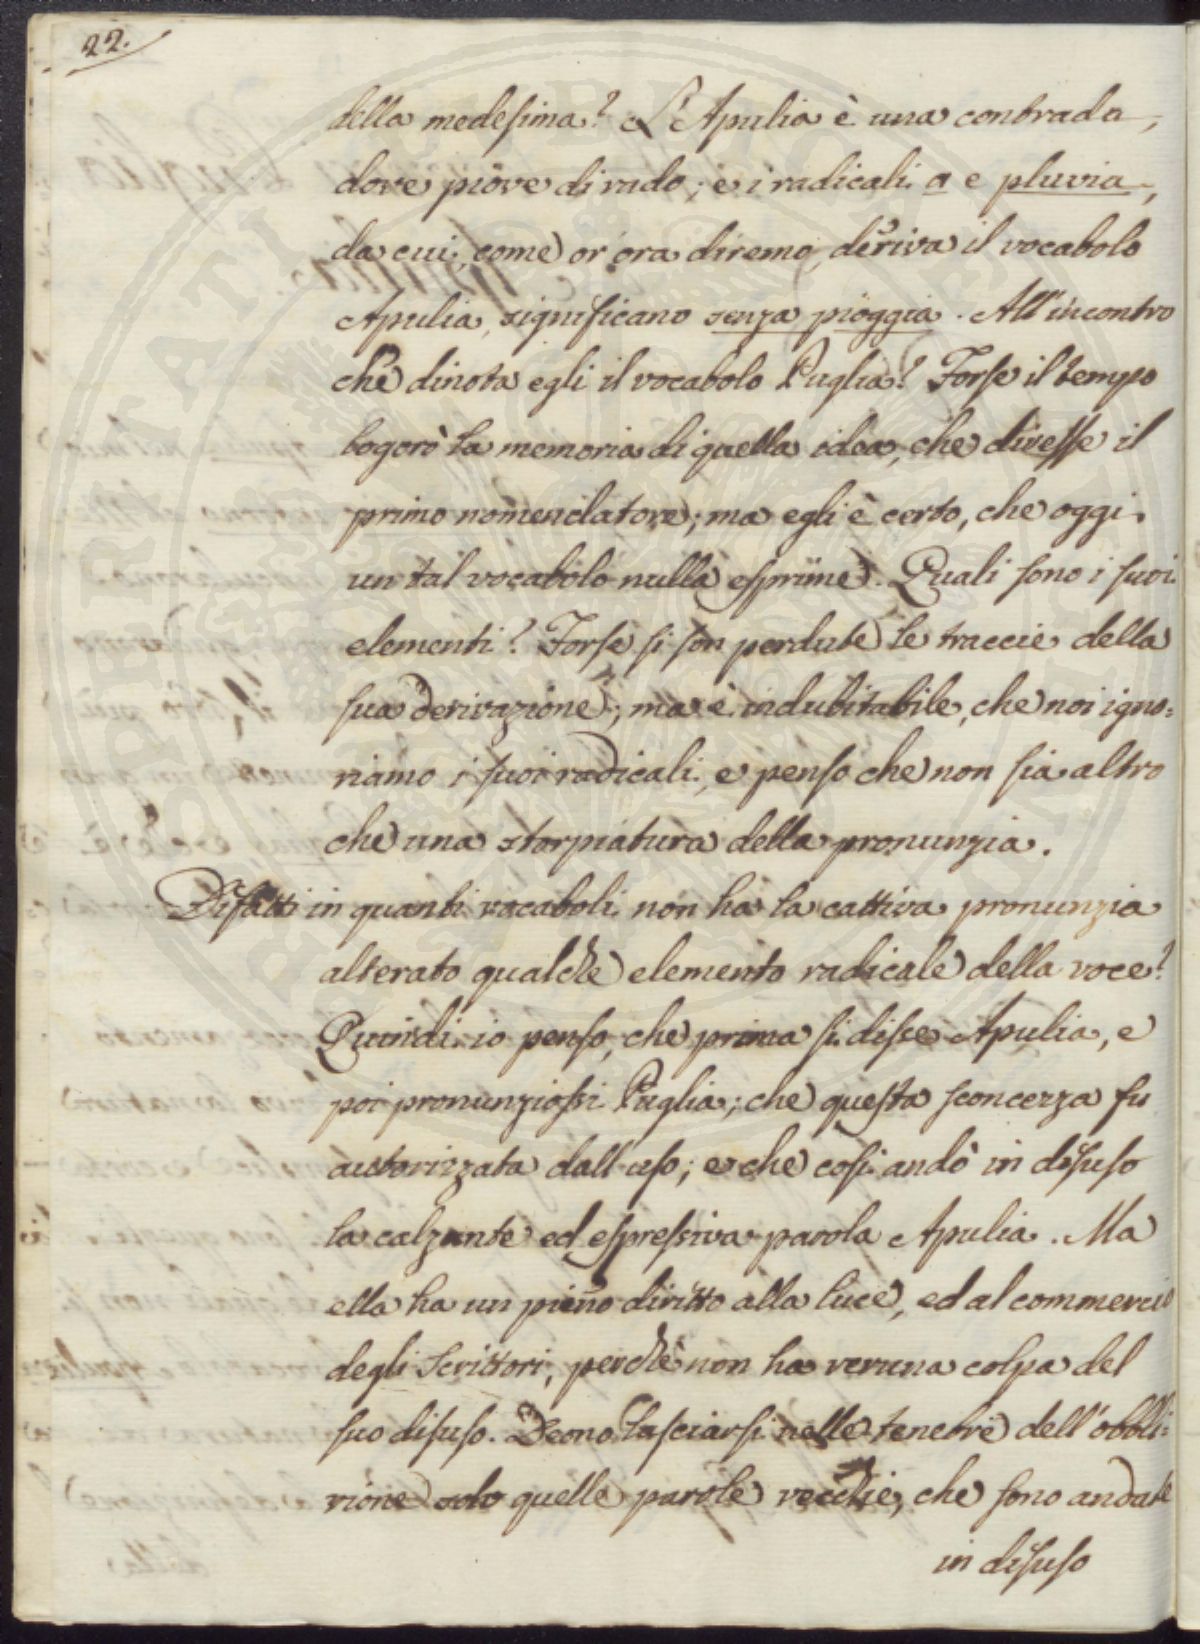 22.
della medesima? L'Apulia è una contrada,
dove piove di rado; e i radicali a e pluvia,
da cui, come or' ora diremo, deriva il vocabolo
Apulia, significano senza pioggia. All'incontro
che dinota egli il vocabolo Puglia? Forse il tempo
logorò la memoria di quella idea, che diresse il
primo nomenclatore; ma egli è certo, che oggi
un tal vocabolo nulla esprime. Quali sono i suoi
elementi? Forse si son perdute le traccie della
sua derivazione; ma è indubitabile, che noi igno=
riamo i suoi radicali, e penso che non sia altro
che una storpiatura della pronunzia.
Difatti in quanti vocaboli non ha la cattiva pronunzia
alterato qualche elemento radicale della voce?
Quindi io penso, che prima si disse Apulia, e
poi pronunziossi Puglia; che questa sconcezza fu
autorizzata dall'uso; e che così andò in disuso
la calzante ed espressiva parola Apulia. Ma
ella ha un pieno diritto alla luce, ed al commercio
degli Scrittori, perchè non ha veruna colpa del
suo disuso. Deono lasciarsi nelle tenebre dell'obbli=
vione solo quelle parole vecchie, che sono andate
in disuso